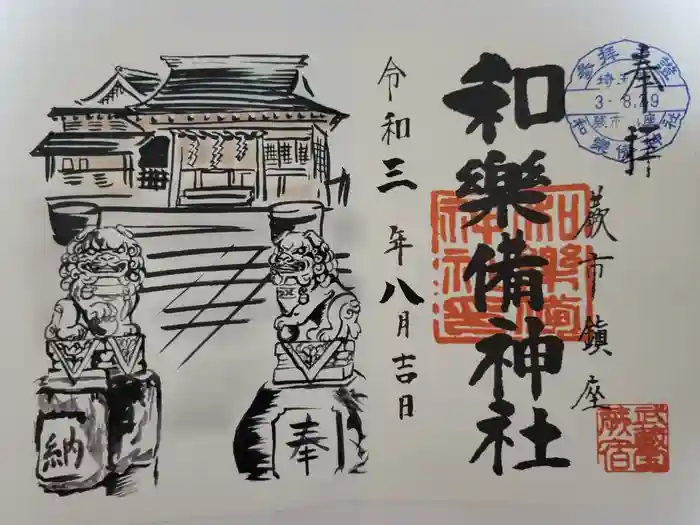 奉拝
參拝證
埼玉
3.-8.29
蕨市
和樂備神社
蕨市鎮座
武蔵国
蕨宿
和樂備神社
令和三年八月吉日
奉
納